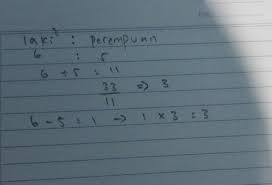 laki² : perempuan
6 : 5
6 + 5 = 11
33 => 3
11
6 - 5 = 1 -> 1 x 3 = 3